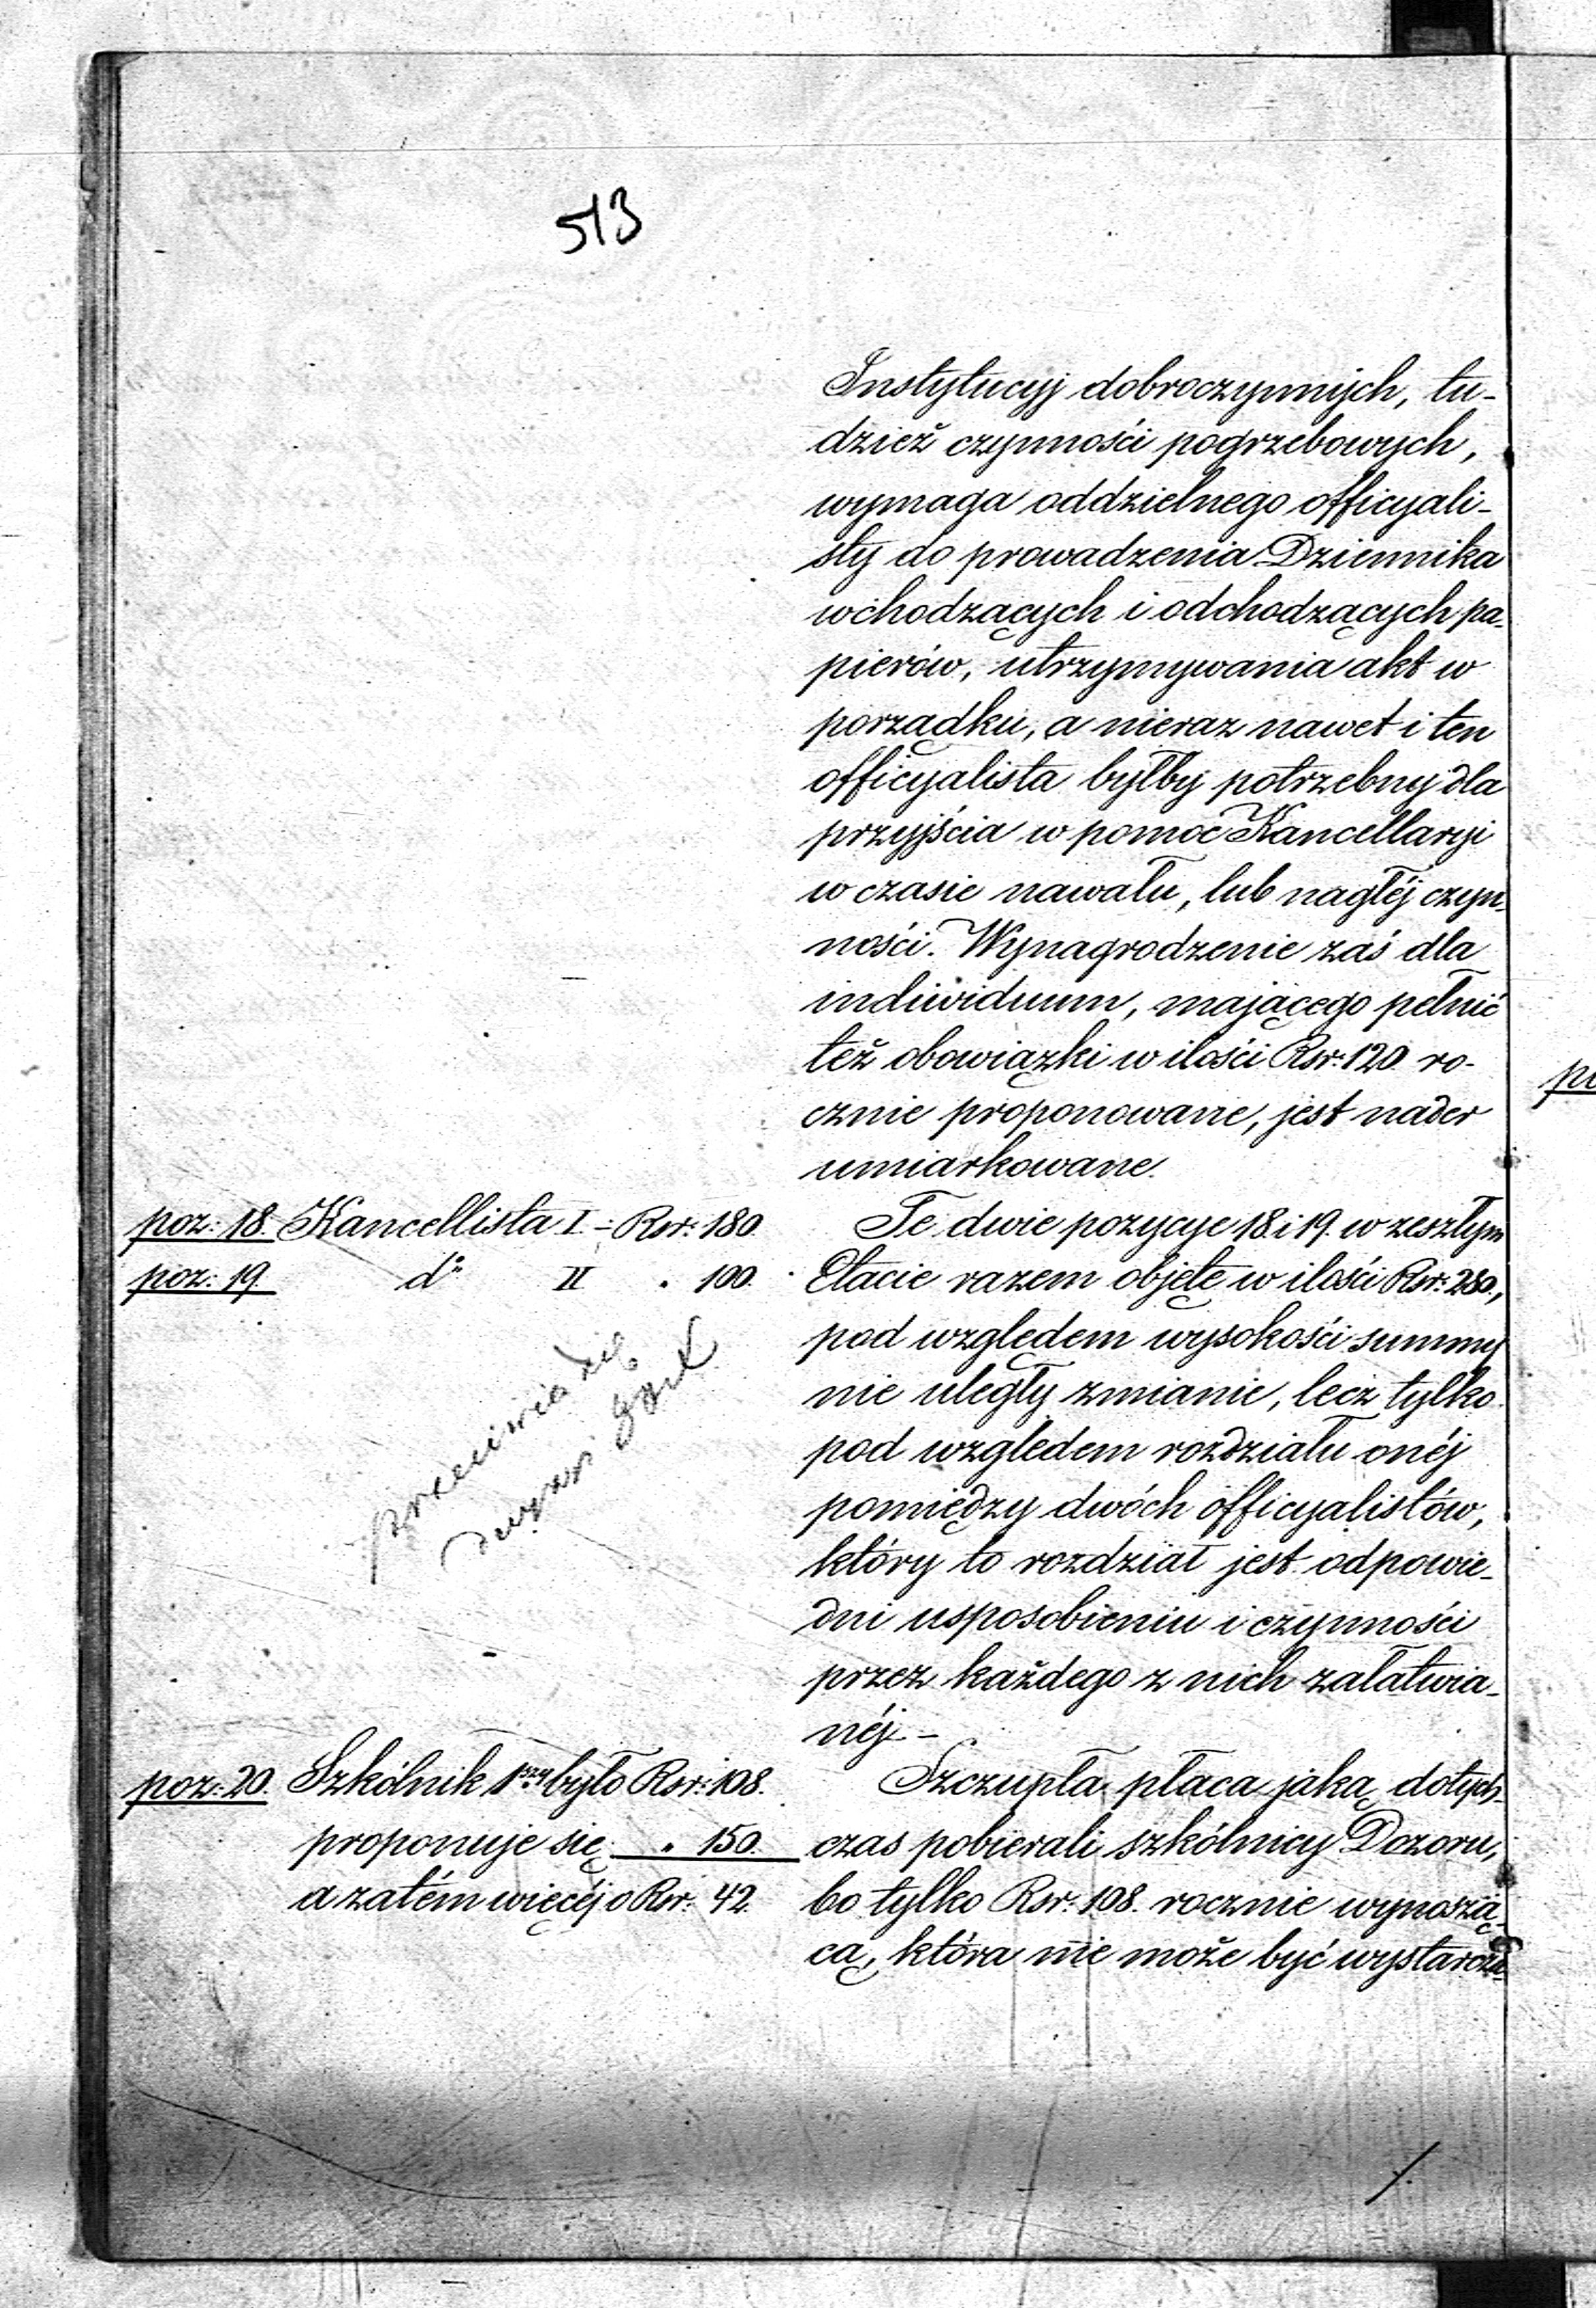 513
Instytucyj dobroczynnych, tu-
dzież czynności pogrzebowych,
wymaga oddzielnego officyali-
sty do prowadzenia Dziennika
wchodzących i odchodzących pa-
pierów, utrzymywania akt w
porządku, a nieraz nawet i ten
officyalista byłby potrzebny dla
przyjścia w pomoc Kancellaryi
w czasie nawału, lub nagłéj czyn-
ności. Wynagrodzenie zaś dla
indiwiduum, mającego pełnić
też obowiązki w ilości Rsr: 120. ro-
cznie proponowane, jest nader
umiarkowane.
poz: 18. Kancellista I. - Rsr: 180.
poz: 19. do II " 100.
Te dwie pozycye 18 i 19. w zeszłym
Etacie razem objęte w ilości Rsr: 280.,
pod względem wysokości summy
nie uległy zmianie, lecz tylko
pod względem rozdziału onéj
pomiędzy dwóch officyalistów,
który to rozdział jest odpowie-
dni usposobieniu i czynności
przez każdego z nich załatwia-
néj. -
poz: 20. Szkólnik 1szy było Rsr: 108.
proponuje się " 150.
a zatém więcéj o Rsr: 42.
Szczupła płaca jaką dotych-
czas pobierali szkólnicy Dozoru,
bo tylko Rsr: 108. rocznie wynoszą-
cą, która nie może być wystarcza-